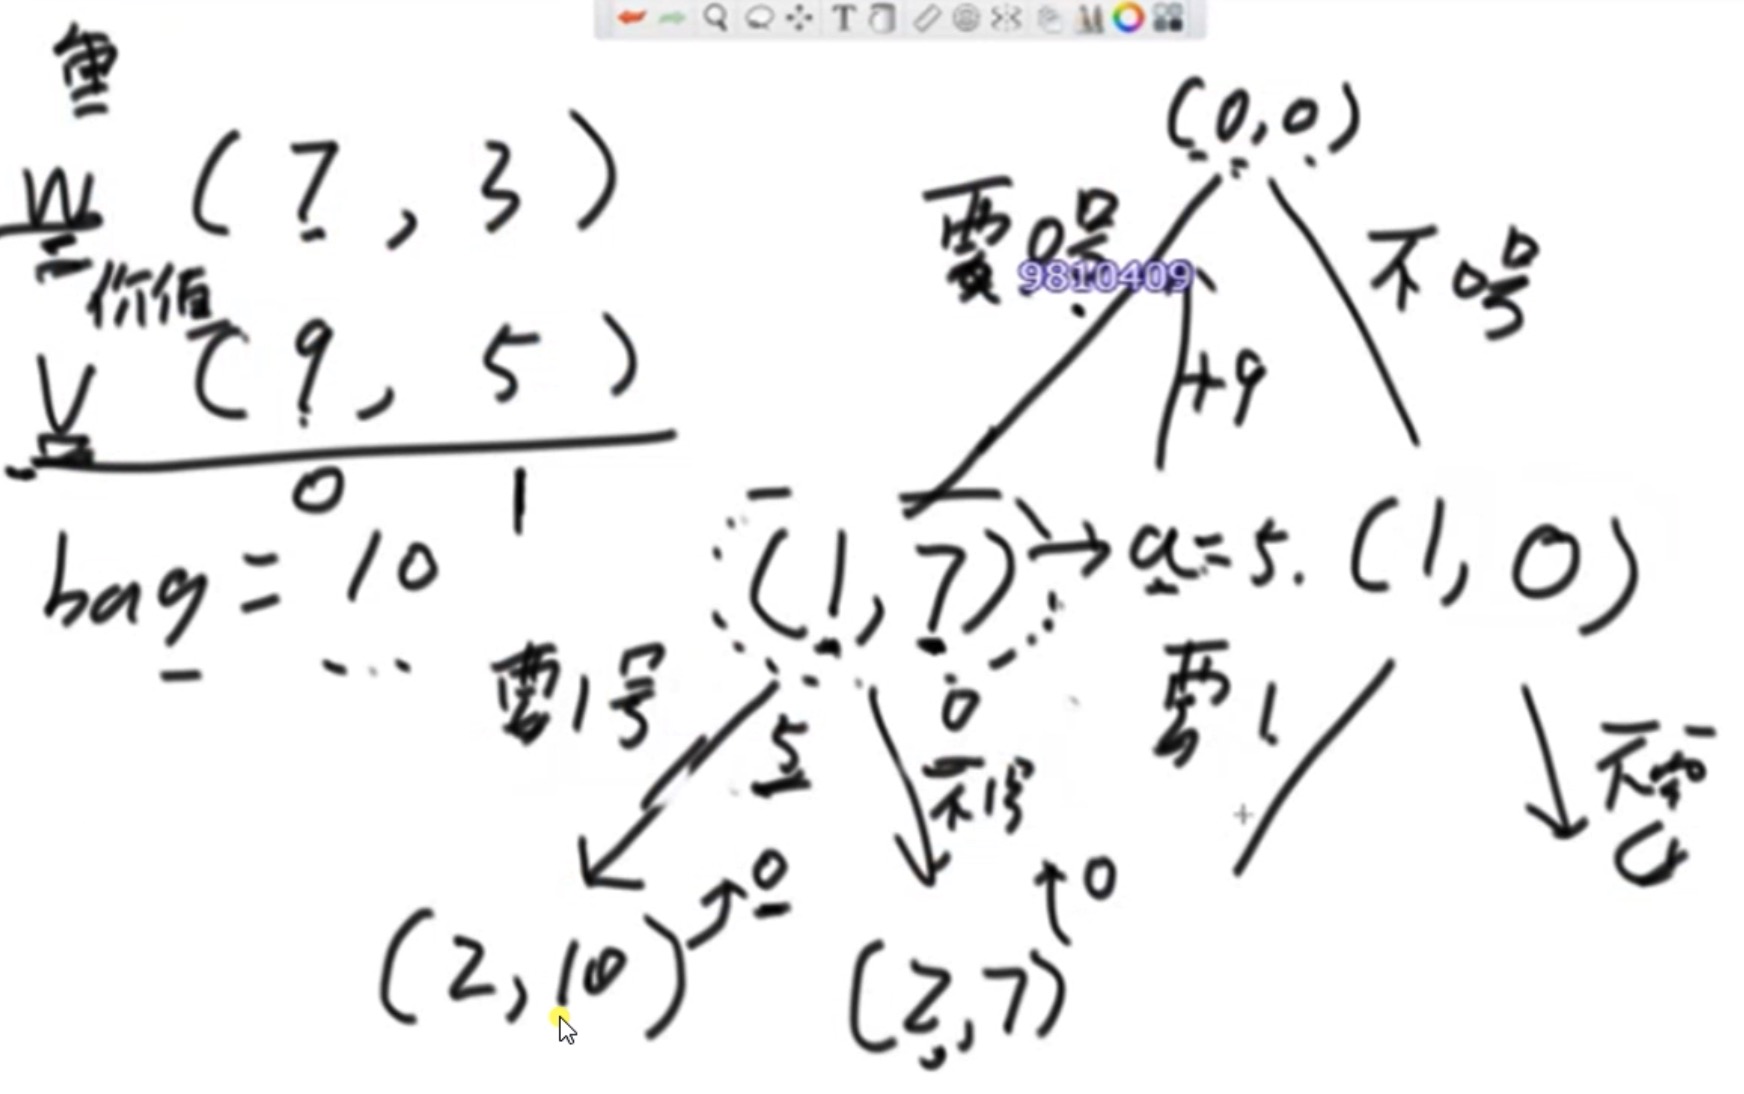 重
w (7, 3)
价值
v (9, 5)
0 1
bag = 10
(0,0)
要0号
不0号
9810409
+9
(1,7) → a=5. (1,0)
要1号
5
0
不1号
要1
不要
(2,10)
0
(2,7)
0